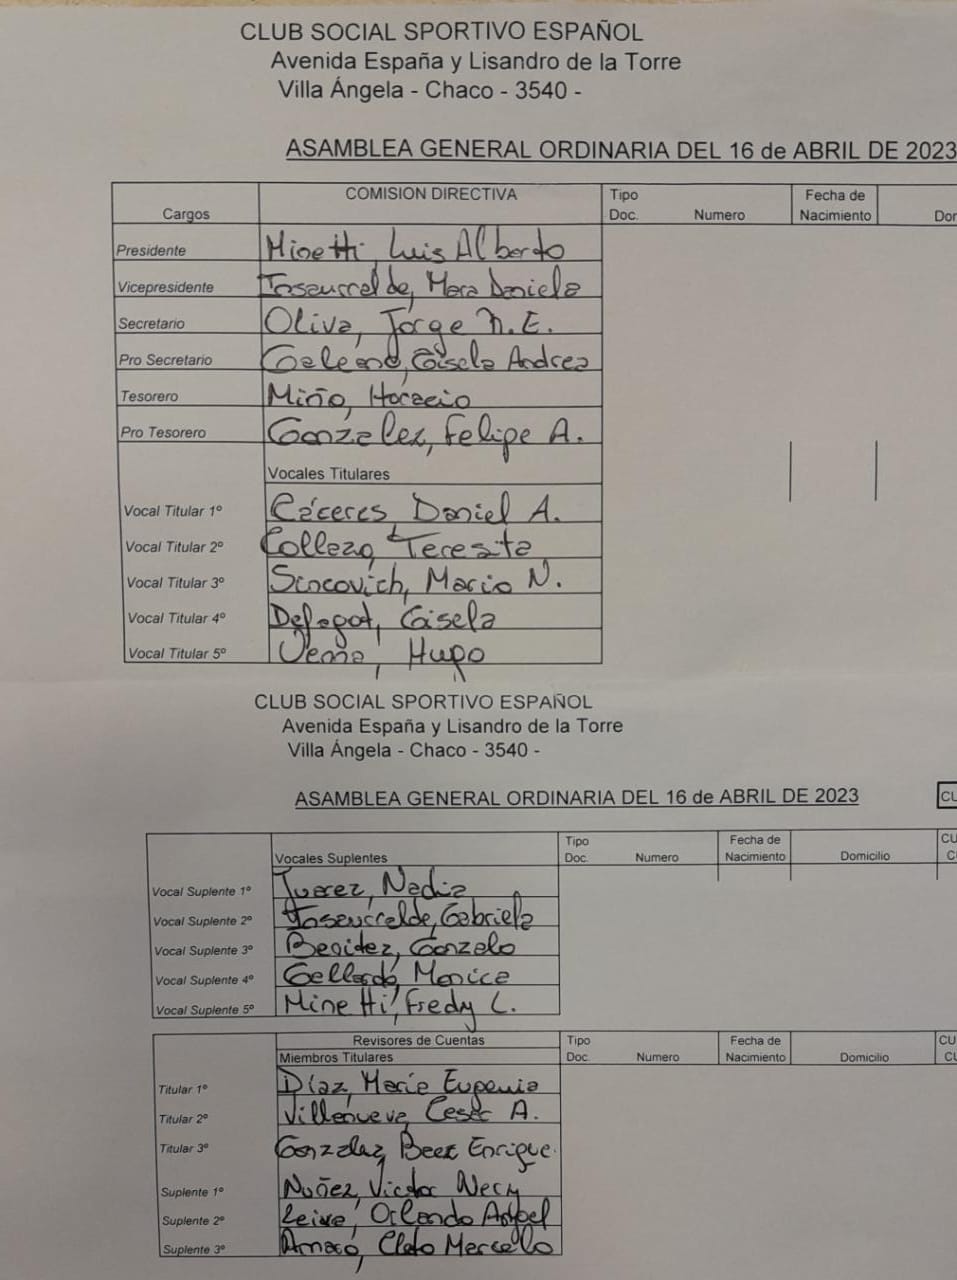 CLUB SOCIAL SPORTIVO ESPAÑOL
Avenida España y Lisandro de la Torre
Villa Ángela - Chaco - 3540 -
ASAMBLEA GENERAL ORDINARIA DEL 16 de ABRIL DE 2023
Cargos COMISION DIRECTIVA Tipo Doc. Numero Fecha de Nacimiento
Presidente Minetti, Luis Alberto
Vicepresidente Insaurralde, Mara Daniela
Secretario Oliva, Jorge N. E.
Pro Secretario Galeano, Gisela Andrea
Tesorero Miño, Horacio
Pro Tesorero Gonzalez, Felipe A.
Vocales Titulares
Vocal Titular 1º Cáceres, Daniel A.
Vocal Titular 2º Collazo, Teresita
Vocal Titular 3º Sincovich, Mario N.
Vocal Titular 4º Gisela
Vocal Titular 5º Hugo
CLUB SOCIAL SPORTIVO ESPAÑOL
Avenida España y Lisandro de la Torre
Villa Ángela - Chaco - 3540 -
ASAMBLEA GENERAL ORDINARIA DEL 16 de ABRIL DE 2023
Vocales Suplentes Tipo Doc. Numero Fecha de Nacimiento Domicilio
Vocal Suplente 1º Juarez, Nadia
Vocal Suplente 2º Insaurralde, Gabriela
Vocal Suplente 3º Benidez, Gonzalo
Vocal Suplente 4º Gallardo, Monica
Vocal Suplente 5º Minetti, Fredy L.
Revisores de Cuentas Tipo Doc. Numero Fecha de Nacimiento Domicilio
Miembros Titulares
Titular 1º Díaz, Maria Eugenia
Titular 2º Villanueva, Cesar A.
Titular 3º Gonzalez, Beez Enrique
Suplente 1º Nuñez, Victor Nery
Suplente 2º Leiva, Orlando Anibel
Suplente 3º Cleto Marcello